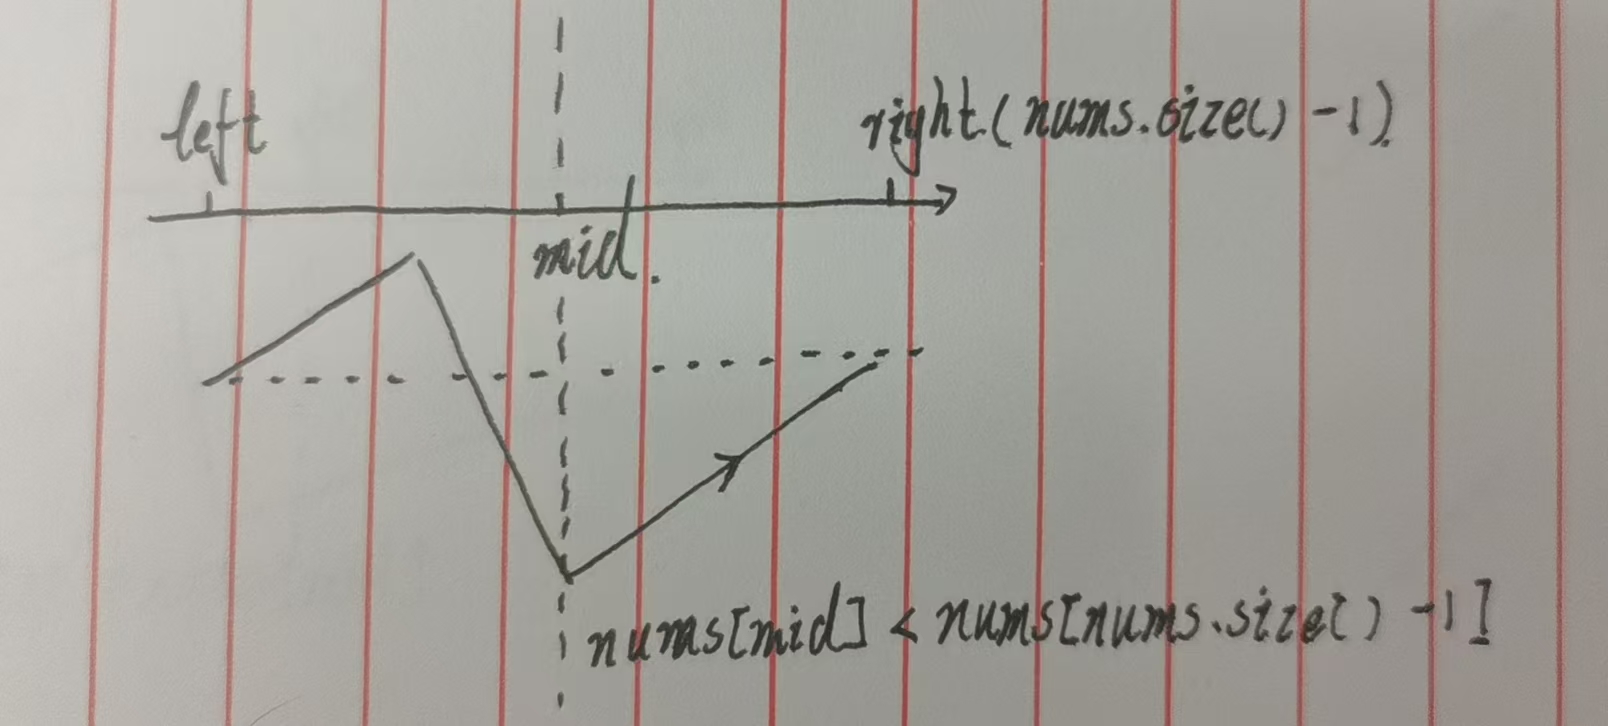 left
right(nums.size() -1)
mid.
nums[mid] < nums[nums.size() -1]